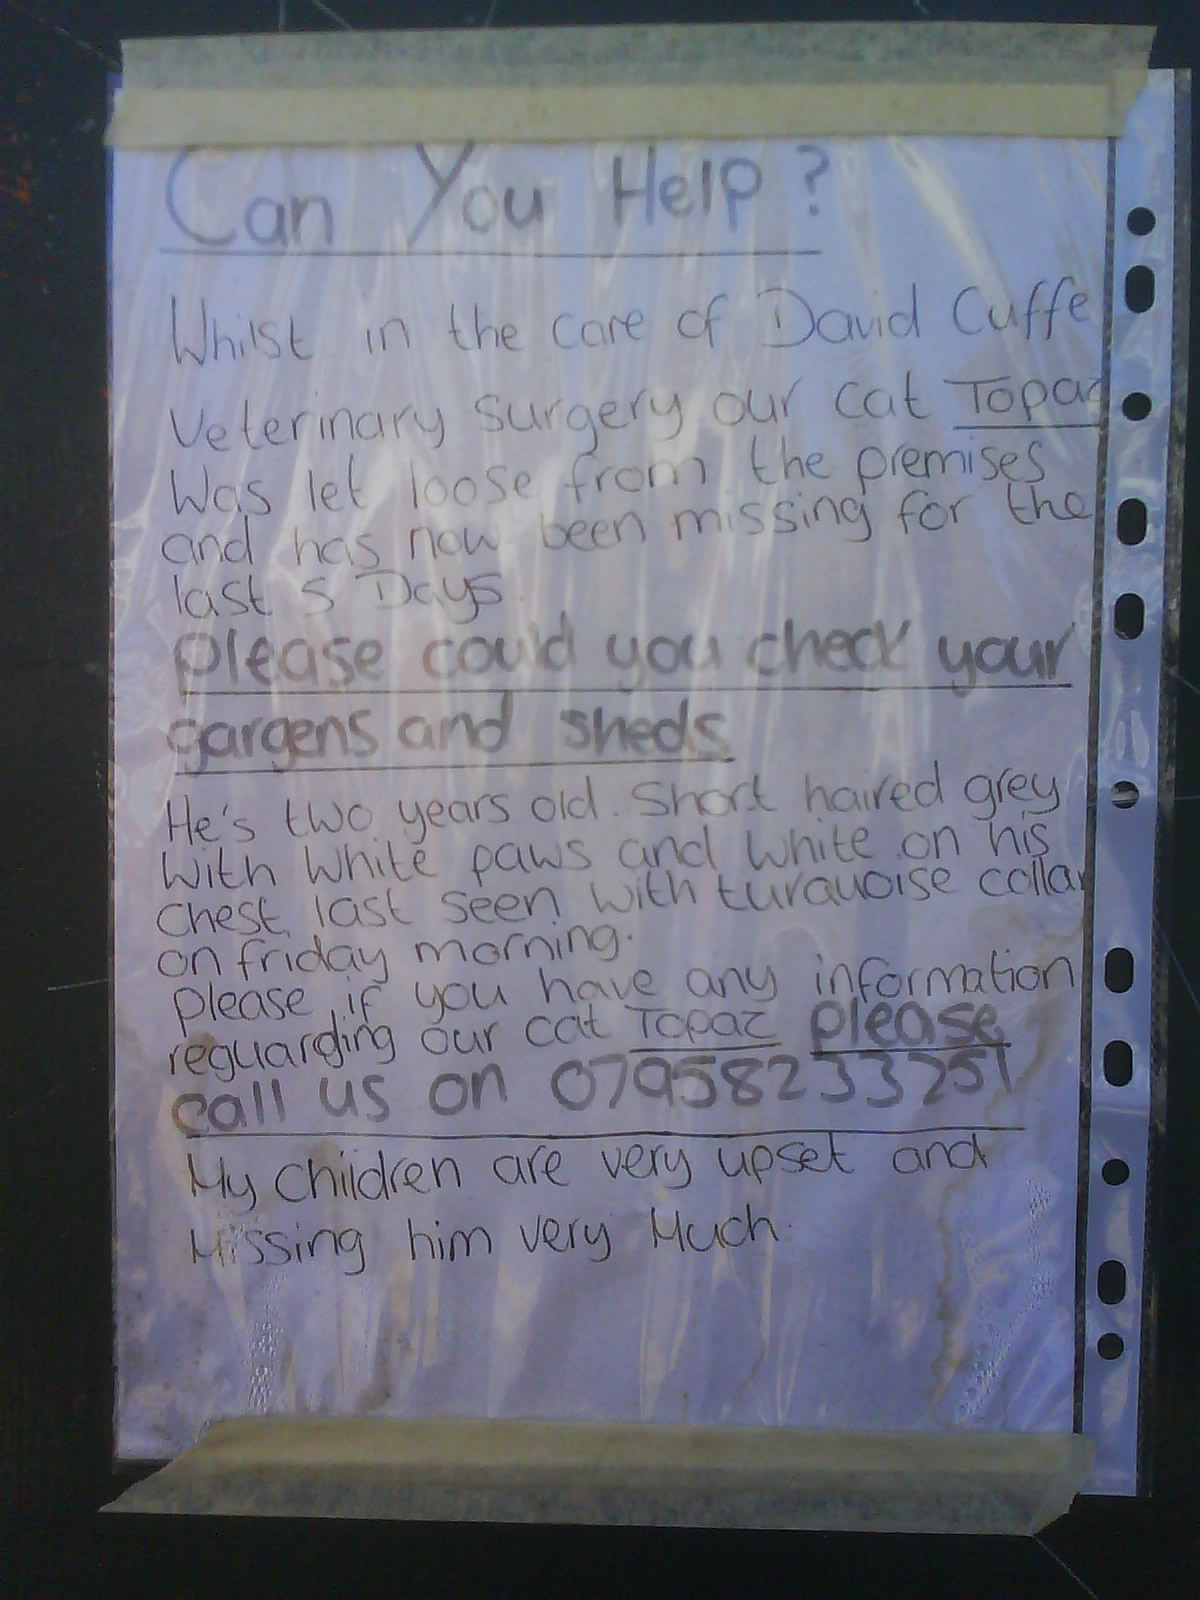 Can You Help?
Whilst in the care of David Cuffe
Veterinary Surgery our cat Topaz
Was let loose from the premises
and has now been missing for the
last 5 Days
Please could you check your
gargens and sheds
He's two years old. Short haired grey
With White paws and White on his
Chest, last seen with turquoise collar
on friday morning.
Please if you have any information
reguarding our cat Topaz please
call us on 07958233251
My children are very upset and
Missing him very Much.